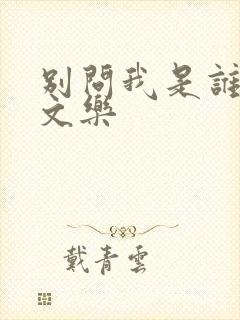 別問我是誰
文樂
戴青雲